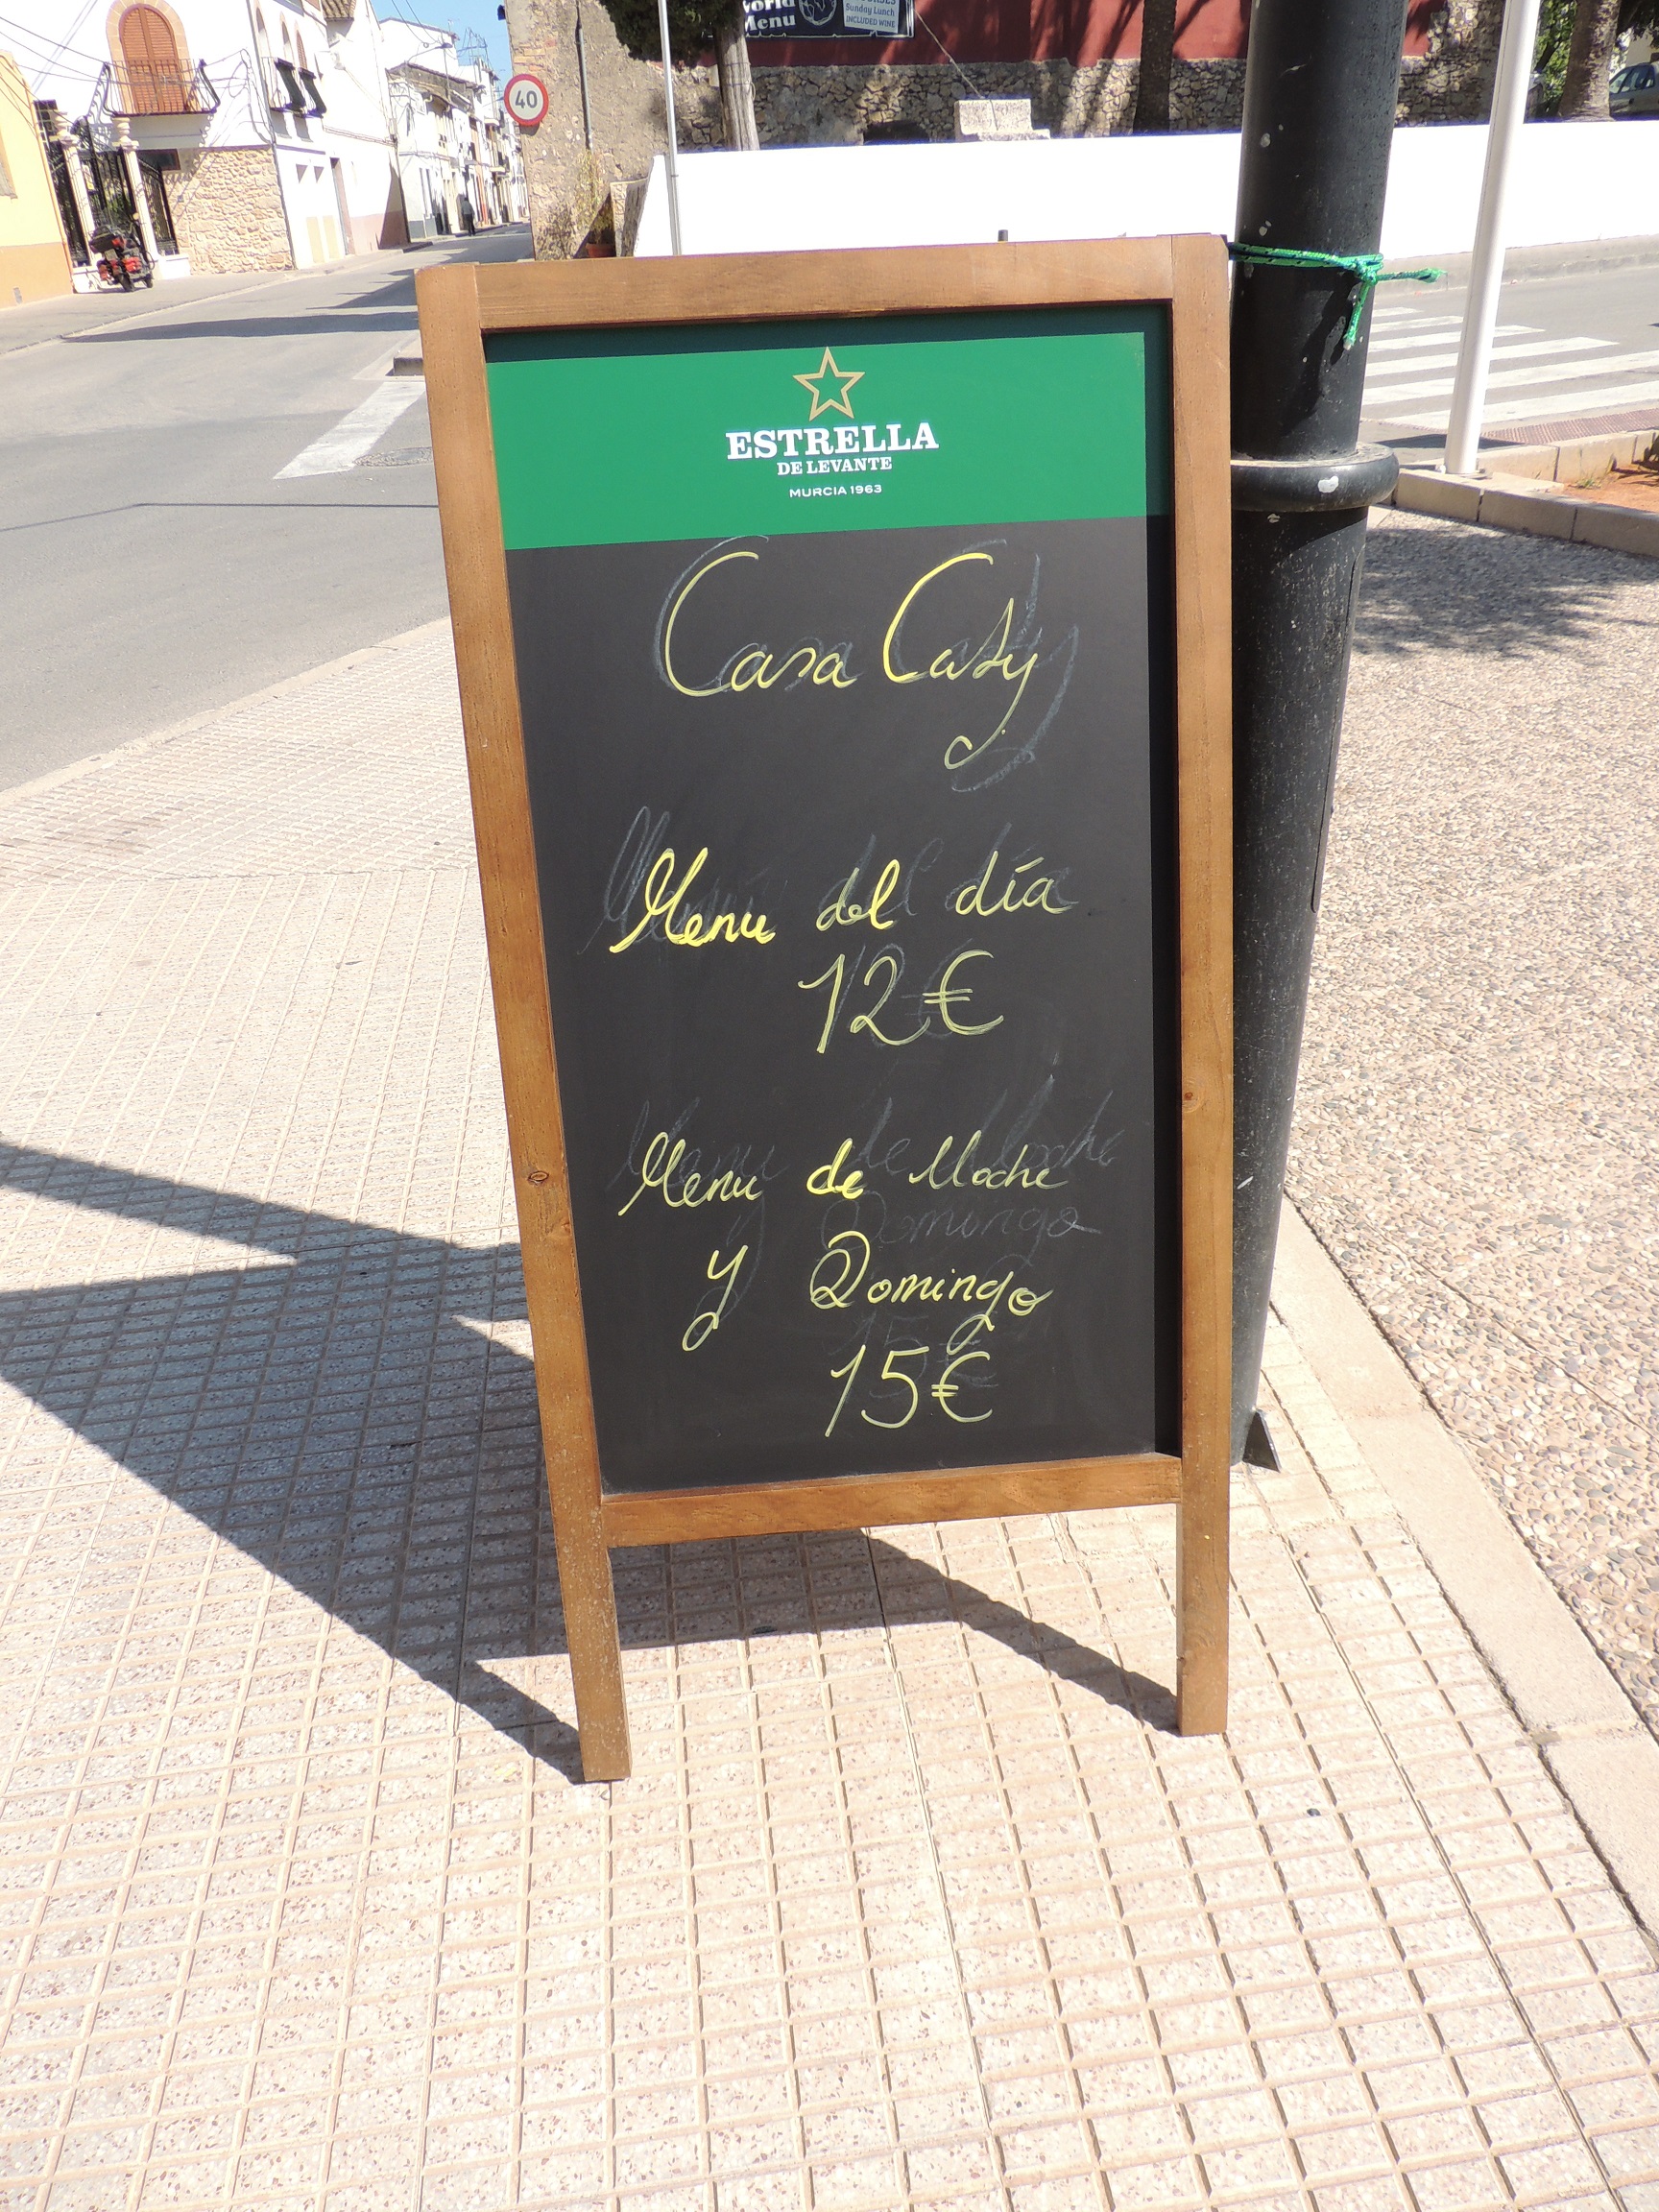 World
Menu
Sunday Lunch
INCLUDED WINE
40
ESTRELLA
DE LEVANTE
MURCIA 1963
Casa Casy
Menu del día
12€
Menu de Noche
y Domingo
15€